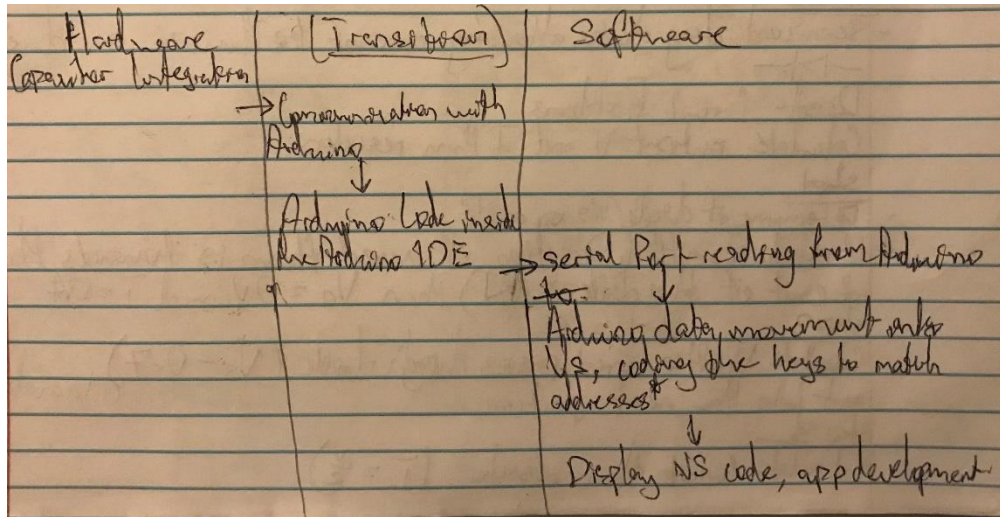 Hardware
Capacitor Integration
[Transition]
→ Communication with
Arduino
↓
Arduino Code inside
the Arduino IDE
Software
→ serial Port reading from Arduino
to
↓
Arduino data movement into
VS, coding the keys to match
addresses*
↓
Display VS code, app development